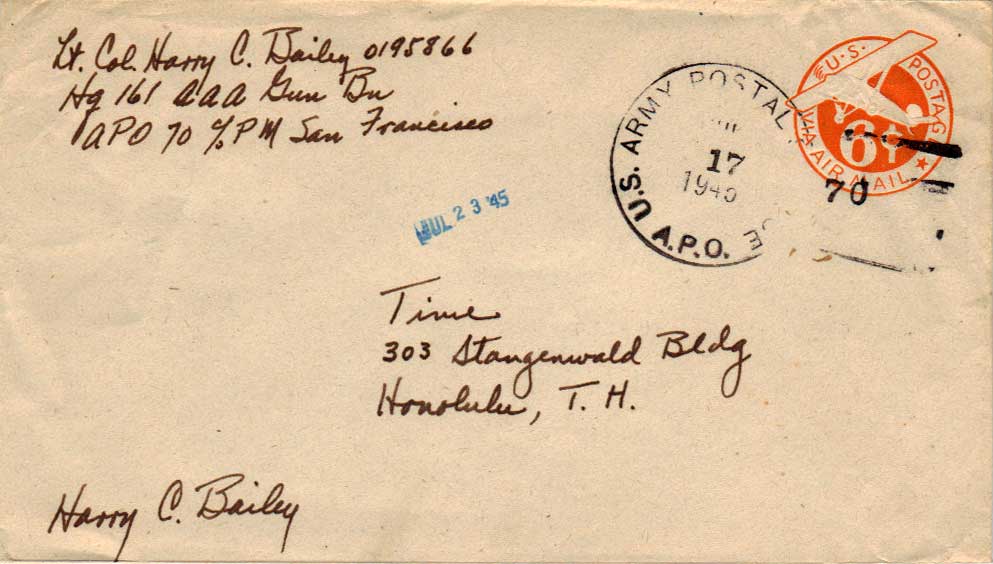 Lt. Col. Harry C. Bailey 0195866
Hq 161 AAA Gun Bn
APO 70 c/o PM San Francisco
U.S. ARMY POSTAL
17
1945
A.P.O.
70
U.S. POSTAGE
6¢
VIA AIR MAIL
JUL 23 '45
Time
303 Stangenwald Bldg
Honolulu, T. H.
Harry C. Bailey